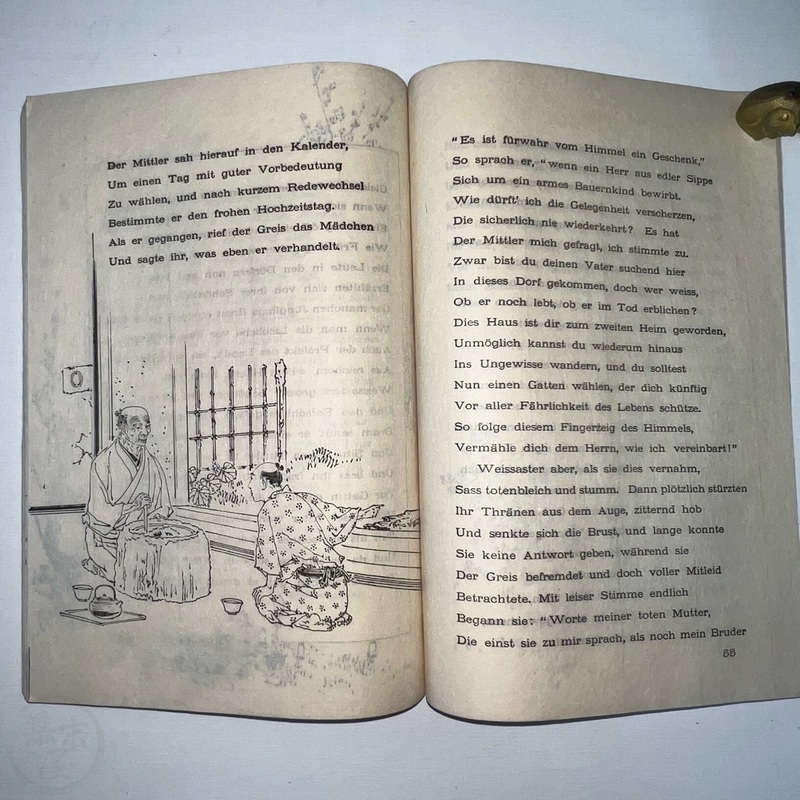 Der Mittler sah hierauf in den Kalender,
Um einen Tag mit guter Vorbedeutung
Zu wählen, und nach kurzem Redewechsel
Bestimmte er den frohen Hochzeitstag.
Als er gegangen, rief der Greis das Mädchen
Und sagte ihr, was eben er verhandelt.
"Es ist fürwahr vom Himmel ein Geschenk,"
So sprach er, "wenn ein Herr aus edler Sippe
Sich um ein armes Bauernkind bewirbt.
Wie dürft' ich die Gelegenheit verscherzen,
Die sicherlich nie wiederkehrt? Es hat
Der Mittler mich gefragt, ich stimmte zu.
Zwar bist du deinen Vater suchend hier
In dieses Dorf gekommen, doch wer weiss,
Ob er noch lebt, ob er im Tod erblichen?
Dies Haus ist dir zum zweiten Heim geworden,
Unmöglich kannst du wiederum hinaus
Ins Ungewisse wandern, und du solltest
Nun einen Gatten wählen, der dich künftig
Vor aller Fährlichkeit des Lebens schütze.
So folge diesem Fingerzeig des Himmels,
Vermähle dich dem Herrn, wie ich vereinbart!"
Weissaster aber, als sie dies vernahm,
Sass totenbleich und stumm. Dann plötzlich stürzten
Ihr Thränen aus dem Auge, zitternd hob
Und senkte sich die Brust, und lange konnte
Sie keine Antwort geben, während sie
Der Greis befremdet und doch voller Mitleid
Betrachtete. Mit leiser Stimme endlich
Begann sie: "Worte meiner toten Mutter,
Die einst sie zu mir sprach, als noch mein Bruder
55